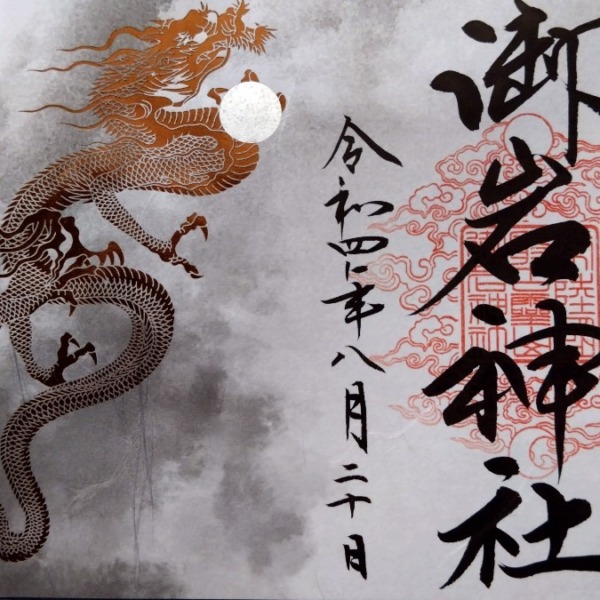 御岩神社
令和四年八月二十日